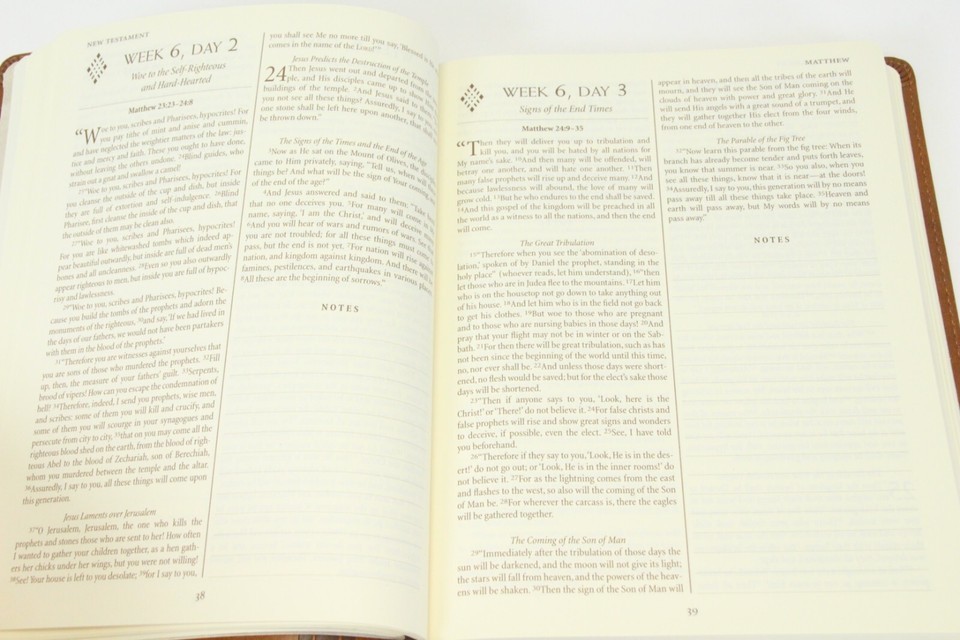 NEW TESTAMENT
WEEK 6, DAY 2
Woe to the Self-Righteous
and Hard-Hearted
Matthew 23:23–24:8
“Woe to you, scribes and Pharisees, hypocrites! For
you pay tithe of mint and anise and cummin,
and have neglected the weightier matters of the law: jus-
tice and mercy and faith. These you ought to have done,
without leaving the others undone. 24Blind guides, who
strain out a gnat and swallow a camel!
25“Woe to you, scribes and Pharisees, hypocrites! For
you cleanse the outside of the cup and dish, but inside
they are full of extortion and self-indulgence. 26Blind
Pharisee, first cleanse the inside of the cup and dish, that
the outside of them may be clean also.
27“Woe to you, scribes and Pharisees, hypocrites!
For you are like whitewashed tombs which indeed ap-
pear beautiful outwardly, but inside are full of dead men’s
bones and all uncleanness. 28Even so you also outwardly
appear righteous to men, but inside you are full of hypoc-
risy and lawlessness.
29“Woe to you, scribes and Pharisees, hypocrites! Be-
cause you build the tombs of the prophets and adorn the
monuments of the righteous, 30and say, ‘If we had lived in
the days of our fathers, we would not have been partakers
with them in the blood of the prophets.’
31“Therefore you are witnesses against yourselves that
you are sons of those who murdered the prophets. 32Fill
up, then, the measure of your fathers’ guilt. 33Serpents,
brood of vipers! How can you escape the condemnation of
hell? 34Therefore, indeed, I send you prophets, wise men,
and scribes: some of them you will kill and crucify, and
some of them you will scourge in your synagogues and
persecute from city to city, 35that on you may come all the
righteous blood shed on the earth, from the blood of righ-
teous Abel to the blood of Zechariah, son of Berechiah,
whom you murdered between the temple and the altar.
36Assuredly, I say to you, all these things will come upon
this generation.
Jesus Laments over Jerusalem
37“O Jerusalem, Jerusalem, the one who kills the
prophets and stones those who are sent to her! How often
I wanted to gather your children together, as a hen gath-
ers her chicks under her wings, but you were not willing!
38See! Your house is left to you desolate; 39for I say to you,
you shall see Me no more till you say, ‘Blessed is
comes in the name of the LORD!’”
Jesus Predicts the Destruction of the Temple
24 Then Jesus went out and departed from the
ple, and His disciples came up to
buildings of the temple. 2And Jesus said to
you not see all these things? Assuredly, I say to you,
one stone shall be left here upon another, that shall
be thrown down.”
The Signs of the Times and the End of the Age
3Now as He sat on the Mount of Olives, the disciples
came to Him privately, saying, “Tell us, when will
things be? And what will be the sign of Your coming,
of the end of the age?”
4And Jesus answered and said to them: “Take
that no one deceives you. 5For many will come in
name, saying, ‘I am the Christ,’ and will deceive
6And you will hear of wars and rumors of wars. See
you are not troubled; for all these things must come
pass, but the end is not yet. 7For nation will rise against
nation, and kingdom against kingdom. And there will
famines, pestilences, and earthquakes in various places.
8All these are the beginning of sorrows.”
NOTES
38
MATTHEW
WEEK 6, DAY 3
Signs of the End Times
Matthew 24:9–35
“Then they will deliver you up to tribulation and
kill you, and you will be hated by all nations for
My name’s sake. 10And then many will be offended, will
betray one another, and will hate one another. 11Then
many false prophets will rise up and deceive many. 12And
because lawlessness will abound, the love of many will
grow cold. 13But he who endures to the end shall be saved.
14And this gospel of the kingdom will be preached in all
the world as a witness to all the nations, and then the end
will come.
The Great Tribulation
15“Therefore when you see the ‘abomination of deso-
lation,’ spoken of by Daniel the prophet, standing in the
holy place” (whoever reads, let him understand), 16“then
let those who are in Judea flee to the mountains. 17Let him
who is on the housetop not go down to take anything out
of his house. 18And let him who is in the field not go back
to get his clothes. 19But woe to those who are pregnant
and to those who are nursing babies in those days! 20And
pray that your flight may not be in winter or on the Sab-
bath. 21For then there will be great tribulation, such as has
not been since the beginning of the world until this time,
no, nor ever shall be. 22And unless those days were short-
ened, no flesh would be saved; but for the elect’s sake those
days will be shortened.
23“Then if anyone says to you, ‘Look, here is the
Christ!’ or ‘There!’ do not believe it. 24For false christs and
false prophets will rise and show great signs and wonders
to deceive, if possible, even the elect. 25See, I have told
you beforehand.
26“Therefore if they say to you, ‘Look, He is in the des-
ert!’ do not go out; or ‘Look, He is in the inner rooms!’ do
not believe it. 27For as the lightning comes from the east
and flashes to the west, so also will the coming of the Son
of Man be. 28For wherever the carcass is, there the eagles
will be gathered together.
The Coming of the Son of Man
29“Immediately after the tribulation of those days the
sun will be darkened, and the moon will not give its light;
the stars will fall from heaven, and the powers of the heav-
ens will be shaken. 30Then the sign of the Son of Man will
appear in heaven, and then all the tribes of the earth will
mourn, and they will see the Son of Man coming on the
clouds of heaven with power and great glory. 31And He
will send His angels with a great sound of a trumpet, and
they will gather together His elect from the four winds,
from one end of heaven to the other.
The Parable of the Fig Tree
32“Now learn this parable from the fig tree: When its
branch has already become tender and puts forth leaves,
you know that summer is near. 33So you also, when you
see all these things, know that it is near—at the doors!
34Assuredly, I say to you, this generation will by no means
pass away till all these things take place. 35Heaven and
earth will pass away, but My words will by no means
pass away.”
NOTES
39